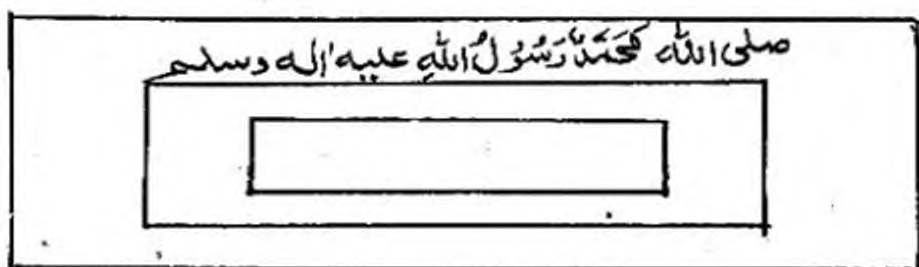 صلى الله مُحَمَّدٌ رَّسُوْلُ اللهِ عليه اٰله وسلم